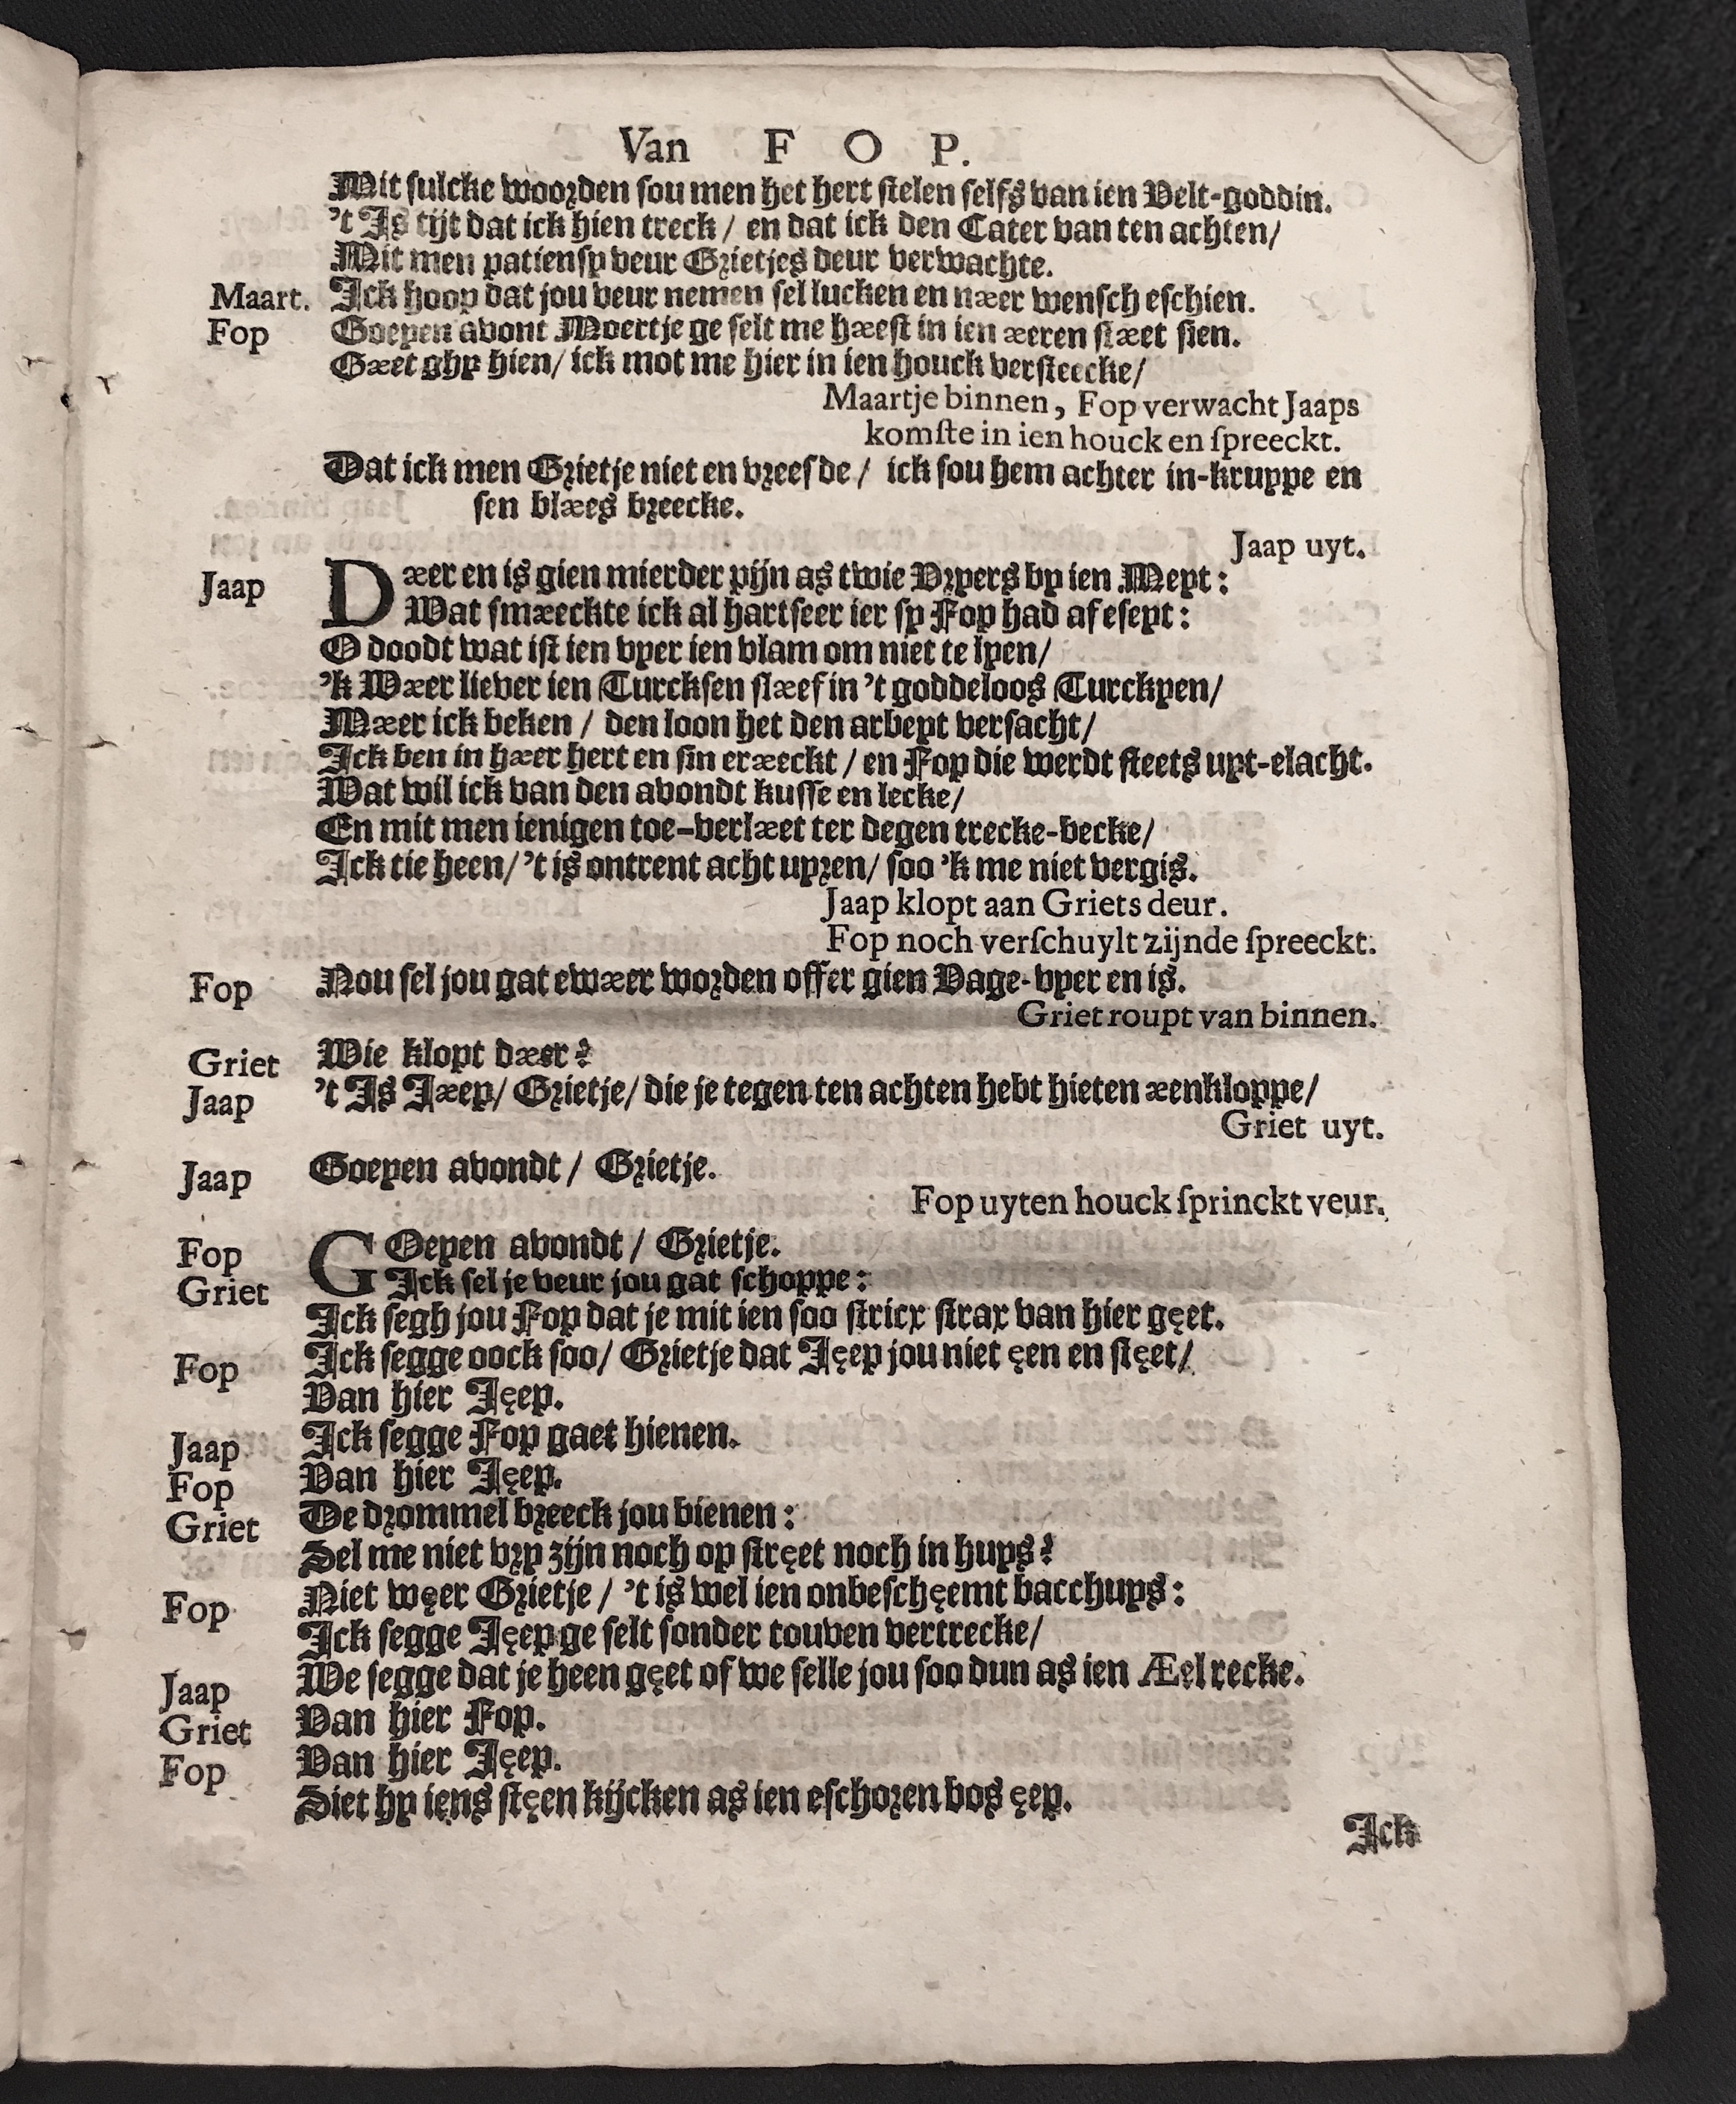 Van F O P.
Mit sulcke woorden sou men het hert stelen selfs van ien Velt-goddin.
't Is tijt dat ick hien treck / en dat ick den Cater van ten achten/
Mit men patiensy veur Grietjes deur verwachte.
Maart. Ick hoop dat jou veur nemen sel lucken en næer wensch eschien.
Fop Goeyen avont Moertje ge selt me hæest in ien æeren stæet sien.
Gæet ghy hien/ ick mot me hier in ien houck versteecke/
Maartje binnen, Fop verwacht Jaaps
komste in ien houck en spreeckt.
Dat ick men Grietje niet en vreesde / ick sou hem achter in-kruppe en
sen blæes breecke.
Jaap uyt.
Jaap Dæer en is gien mierder pijn as twie Vryers by ien Meyt:
Wat smæeckte ick al hartseer ier sy Fop had afeseyt:
O doodt wat ist ien vyer ien vlam om niet te lyen/
'k Wæer liever ien Turcksen slæef in 't goddeloos Turckyen/
Mæer ick beken / den loon het den arbeyt versacht/
Ick ben in hæer hert en sin eræeckt / en Fop die werdt steets uyt-elacht.
Wat wil ick van den avondt kusse en lecke/
En mit men ienigen toe-verlæet ter degen trecke-becke/
Ick tie heen/ 't is ontrent acht uyren/ soo 'k me niet vergis.
Jaap klopt aan Griets deur.
Fop noch verschuylt zijnde spreeckt.
Fop Nou sel jou gat ewæer worden offer gien Vage-vyer en is.
Griet roupt van binnen.
Griet Wie klopt dæer?
Jaap 't Is Jæep/ Grietje/ die je tegen ten achten hebt hieten æenkloppe/
Griet uyt.
Jaap Goeyen avondt / Grietje.
Fop uyten houck sprinckt veur.
Fop GOeyen avondt / Grietje.
Griet Ick sel je veur jou gat schoppe:
Ick segh jou Fop dat je mit ien soo stricx strax van hier gęet.
Fop Ick segge oock soo/ Grietje dat Jęep jou niet ęen en stęet/
Van hier Jęep.
Jaap Ick segge Fop gaet hienen.
Fop Van hier Jęep.
Griet De drommel breeck jou bienen:
Sel me niet vry zijn noch op stręet noch in huys?
Fop Niet węer Grietje / 't is wel ien onbeschęemt bacchuys:
Ick segge Jęep ge selt sonder touven vertrecke/
Jaap We segge dat je heen gęet of we selle jou soo dun as ien Æel recke.
Griet Van hier Fop.
Fop Van hier Jęep.
Siet hy ięns stęen kijcken as ien eschoren bos ęep.
Ick